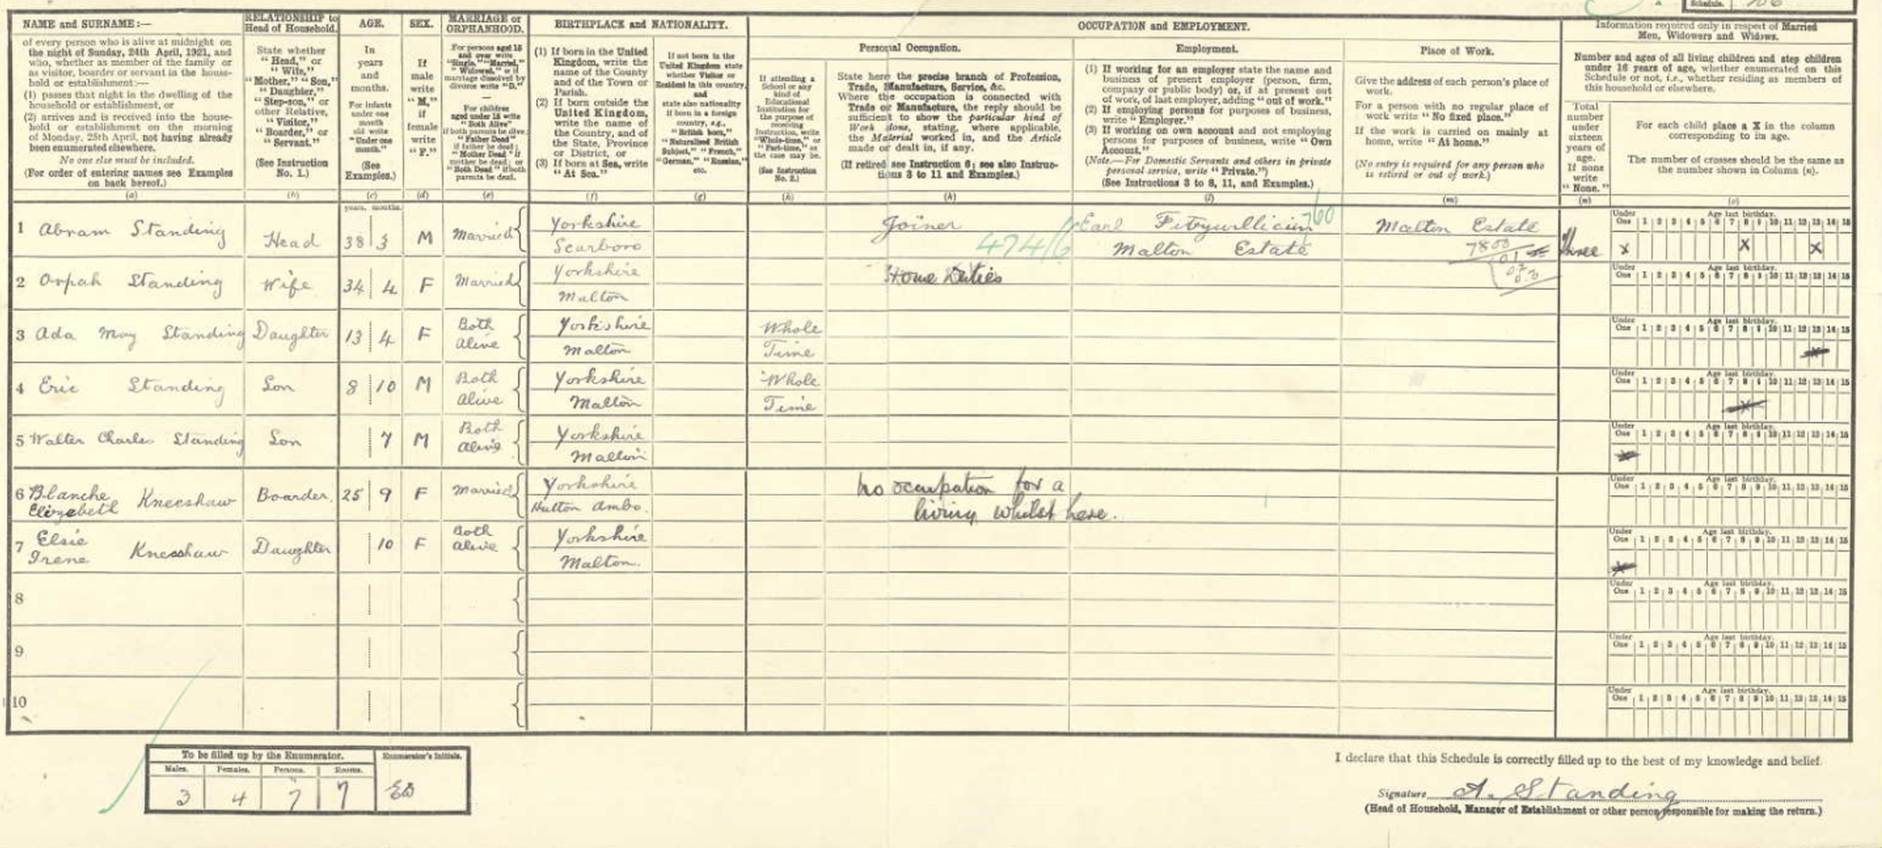 Schedule. 106
NAME and SURNAME:—
of every person who is alive at midnight on
the night of Sunday, 24th April, 1921, and
who, whether as member of the family or
as visitor, boarder or servant in the house-
hold or establishment:—
(1) passes that night in the dwelling of the
household or establishment, or
(2) arrives and is received into the house-
hold or establishment on the morning
of Monday, 25th April, not having already
been enumerated elsewhere.
No one else must be included.
(For order of entering names see Examples
on back hereof.)
(a)
RELATIONSHIP to
Head of Household.
State whether
"Head," or
"Wife,"
"Mother," "Son,"
"Daughter,"
"Step-son," or
other Relative,
"Visitor,"
"Boarder," or
"Servant."
(See Instruction
No. 1.)
(b)
AGE.
In
years
and
months.
For infants
under one
month
old write
"Under one
month."
(See
Examples.)
(c)
SEX.
If
male
write
"M,"
if
female
write
"F."
(d)
MARRIAGE or
ORPHANHOOD.
For persons aged 15
and over write
"Single," "Married,"
"Widowed," or if
marriage dissolved by
divorce write "D."
For children
aged under 15 write
"Both Alive"
if both parents be alive
"Father Dead"
if father be dead;
"Mother Dead" if
mother be dead; or
"Both Dead" if both
parents be dead.
(e)
BIRTHPLACE and NATIONALITY.
(1) If born in the United
Kingdom, write the
name of the County
and of the Town or
Parish.
(2) If born outside the
United Kingdom,
write the name of
the Country, and of
the State, Province
or District, or
(3) If born at Sea, write
"At Sea."
(f)
If not born in the
United Kingdom state
whether Visitor or
Resident in this country,
and
state also nationality
if born in a foreign
country, e.g.,
"British born,"
"Naturalised British
Subject," "French,"
"German," "Russian,"
etc.
(g)
OCCUPATION and EMPLOYMENT.
If attending a
School or any
kind of
Educational
Institution for
the purpose of
receiving
Instruction, write
"Whole-time," or
"Part-time," as
the case may be.
(See Instruction
No. 2.)
(h)
Personal Occupation.
State here the precise branch of Profession,
Trade, Manufacture, Service, &c.
Where the occupation is connected with
Trade or Manufacture, the reply should be
sufficient to show the particular kind of
Work done, stating, where applicable,
the Material worked in, and the Article
made or dealt in, if any.
(If retired see Instruction 6; see also Instruc-
tions 3 to 11 and Examples.)
(k)
Employment.
(1) If working for an employer state the name and
business of present employer (person, firm,
company or public body) or, if at present out
of work, of last employer, adding "out of work."
(2) If employing persons for purposes of business,
write "Employer."
(3) If working on own account and not employing
persons for purposes of business, write "Own
Account."
(Note.—For Domestic Servants and others in private
personal service, write "Private.")
(See Instructions 3 to 8, 11, and Examples.)
(l)
Place of Work.
Give the address of each person's place of
work.
For a person with no regular place of
work write "No fixed place."
If the work is carried on mainly at
home, write "At home."
(No entry is required for any person who
is retired or out of work.)
(m)
Information required only in respect of Married
Men, Widowers and Widows.
Number and ages of all living children and step children
under 16 years of age, whether enumerated on this
Schedule or not, i.e., whether residing as members of
this household or elsewhere.
Total
number
under
sixteen
years of
age.
If none
write
"None."
(n)
For each child place a X in the column
corresponding to its age.
The number of crosses should be the same as
the number shown in Column (n).
(o)
years. months.
1 Abram Standing Head 38 3 M Married Yorkshire Scarboro Joiner 474/6 Earl Fitzwilliam 760 Malton Estate Malton Estate 7800 Three X X X
2 Orpah Standing Wife 34 4 F Married Yorkshire Malton Home Duties
3 Ada May Standing Daughter 13 4 F Both Alive Yorkshire Malton Whole Time X
4 Eric Standing Son 8 10 M Both Alive Yorkshire Malton Whole Time X
5 Walter Charles Standing Son 7 M Both Alive Yorkshire Malton X
6 Blanche Elizebeth Kneeshaw Boarder. 25 9 F Married Yorkshire Hutton Ambo. No occupation for a living whilst here.
7 Elsie Irene Kneeshaw Daughter 10 F Both Alive Yorkshire Malton. X
8
9
10
Under One 1 2 3 4 5 6 7 8 9 10 11 12 13 14 15
Age last birthday.
To be filled up by the Enumerator.
Males. Females. Persons. Rooms.
3 4 7 7
Enumerator's Initials.
I declare that this Schedule is correctly filled up to the best of my knowledge and belief.
Signature A. Standing
(Head of Household, Manager of Establishment or other person responsible for making the return.)